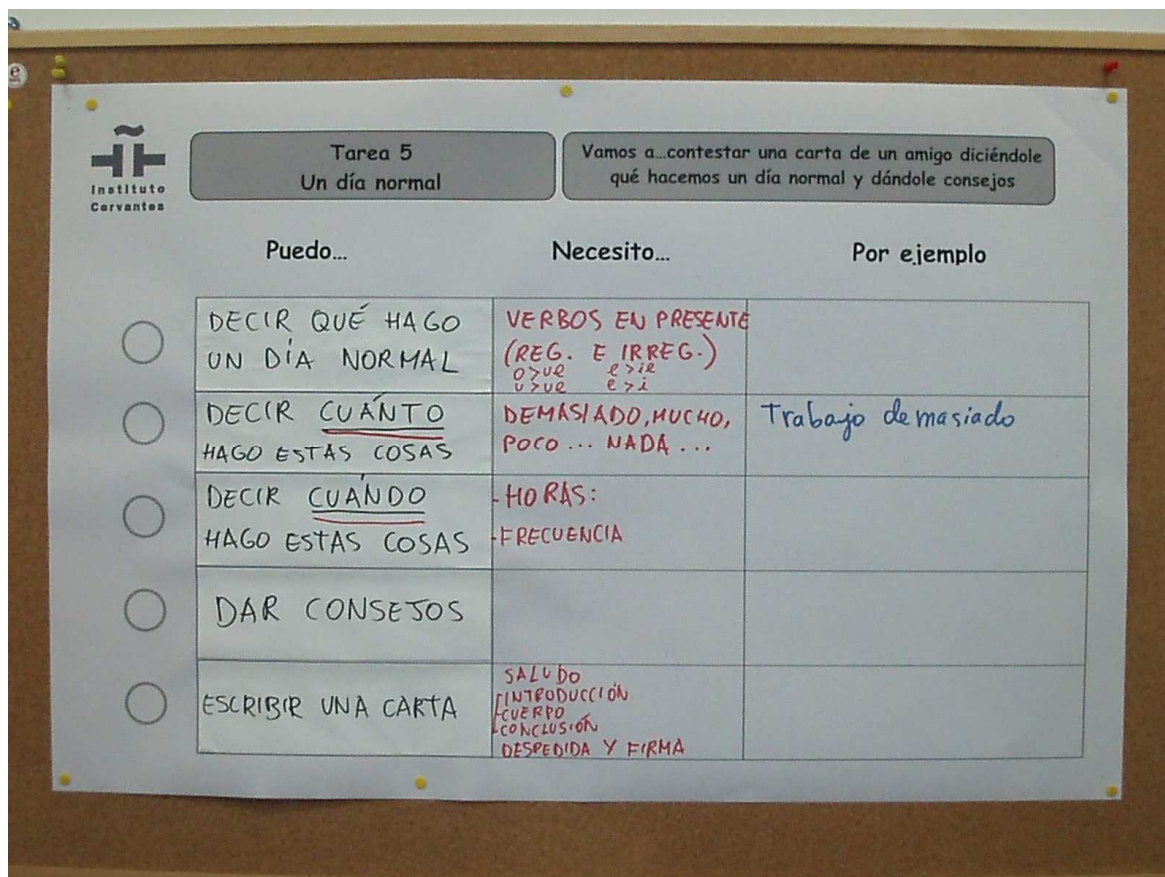 Instituto
Cervantes
Tarea 5
Un día normal
Vamos a...contestar una carta de un amigo diciéndole
qué hacemos un día normal y dándole consejos
Puedo...
Necesito...
Por ejemplo
DECIR QUÉ HAGO
UN DÍA NORMAL
VERBOS EN PRESENTE
(REG. E IRREG.)
o>ue e>ie
u>ue e>i
DECIR CUÁNTO
HAGO ESTAS COSAS
DEMASIADO, MUCHO,
POCO ... NADA ...
Trabajo demasiado
DECIR CUÁNDO
HAGO ESTAS COSAS
- HORAS:
- FRECUENCIA
DAR CONSEJOS
ESCRIBIR UNA CARTA
SALUDO
INTRODUCCIÓN
CUERPO
CONCLUSIÓN
DESPEDIDA Y FIRMA